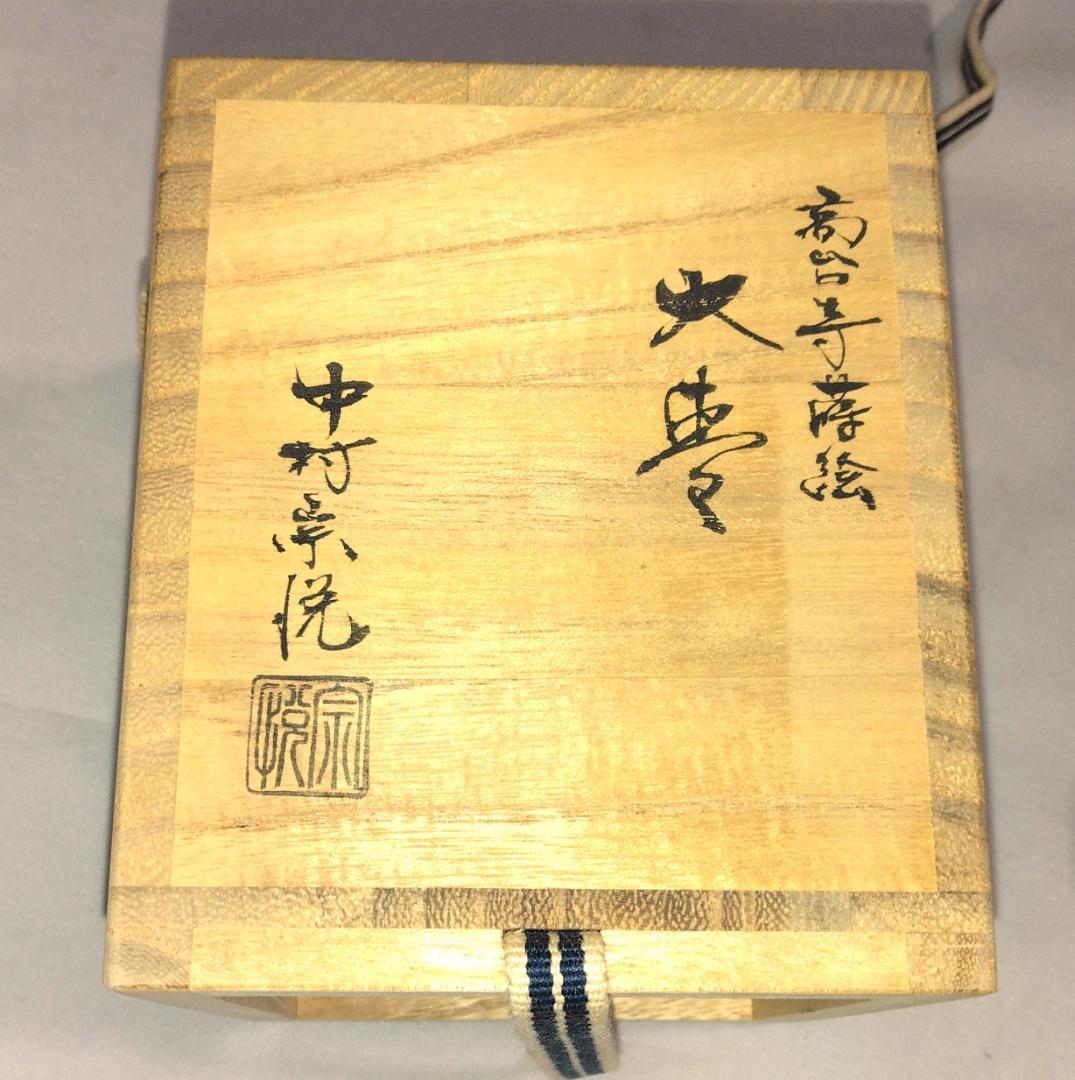 高台寺蒔絵
大棗
中村宗悦
宗悦